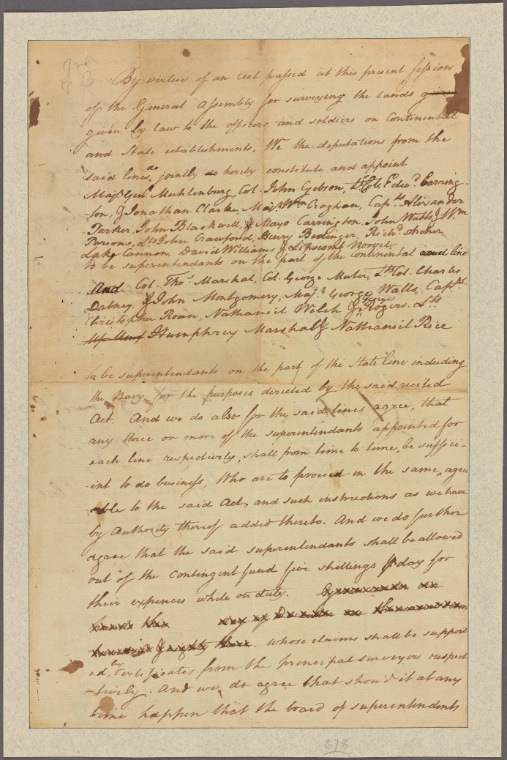 By virtue of an Act passed at this present Session
of the General Assembly for surveying the lands
given by law to the officers and soldiers on Continental
and State establishments. We the deputations from the
said lines, do jointly hereby constitute and appoint
Majr Genl Muhlenburg, Col. John Gibson, Lt Cols Edwd Carring-
ton, & Jonathan Clarke, Majr Wm Croghan, Capts Alexander
Parker, John Blackwell, & Mayo Carrington, John Watts, & Wm
Parsons, Lts John Crawford, Henry Bedinger, Richd Archer,
Luke Cannon, David Williams, &
to be superintendants on the part of the Continental line
And Col. Thos Marshal, Col. George Muter, Lt Col. Charles
Dabney, & John Montgomery, Majr George Walls, Capts
Christopher Roan, Nathaniel Welch & Rogers, Lts
Humphrey Marshal & Nathaniel Rice
to be superintendants on the part of the State line including
the Navy, for the purposes directed by the said recited
Act. And we do also for the said lines agree, that
any three or more of the superintendants appointed for
each line respectively, shall from time to time, be suffici-
ent to do business, Who are to proceed in the same, agree
able to the said Act, and such instructions as we have
by Authority thereof added thereto. And we do further
agree that the said superintendants shall be allowed
out of the Contingent fund five shillings p day for
their expences while on duty.
whose claims shall be support
ed by Certificates from the principal surveyors respect
-tively. And we do agree that should it at any
time happen that the board of superintendants
678